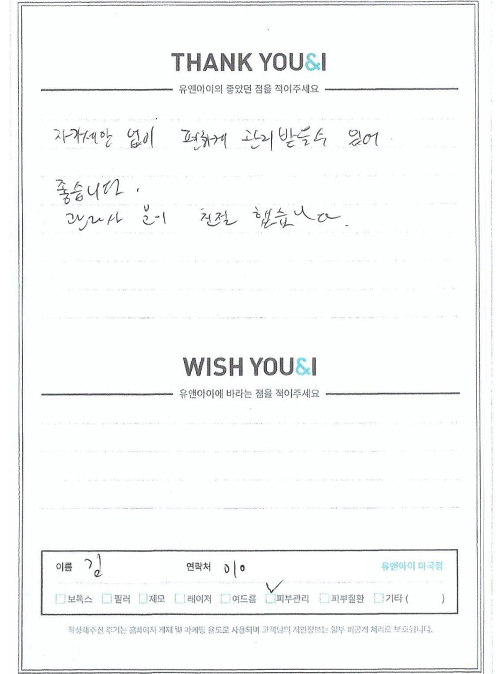 THANK YOU&I
유앤아이의 좋았던 점을 적어주세요
자가세안 없이 편하게 관리받을수 있어
좋습니다.
관리사 분이 친절 했습니다.
WISH YOU&I
유앤아이에 바라는 점을 적어주세요
이름 김 연락처 010 유앤아이 마곡점
보톡스 필러 제모 레이저 여드름 피부관리 피부질환 기타 ( )
작성해주신 후기는 홈페이지 게재 및 마케팅 용도로 사용되며 고객님의 개인정보는 일부 비공개 처리로 보호됩니다.